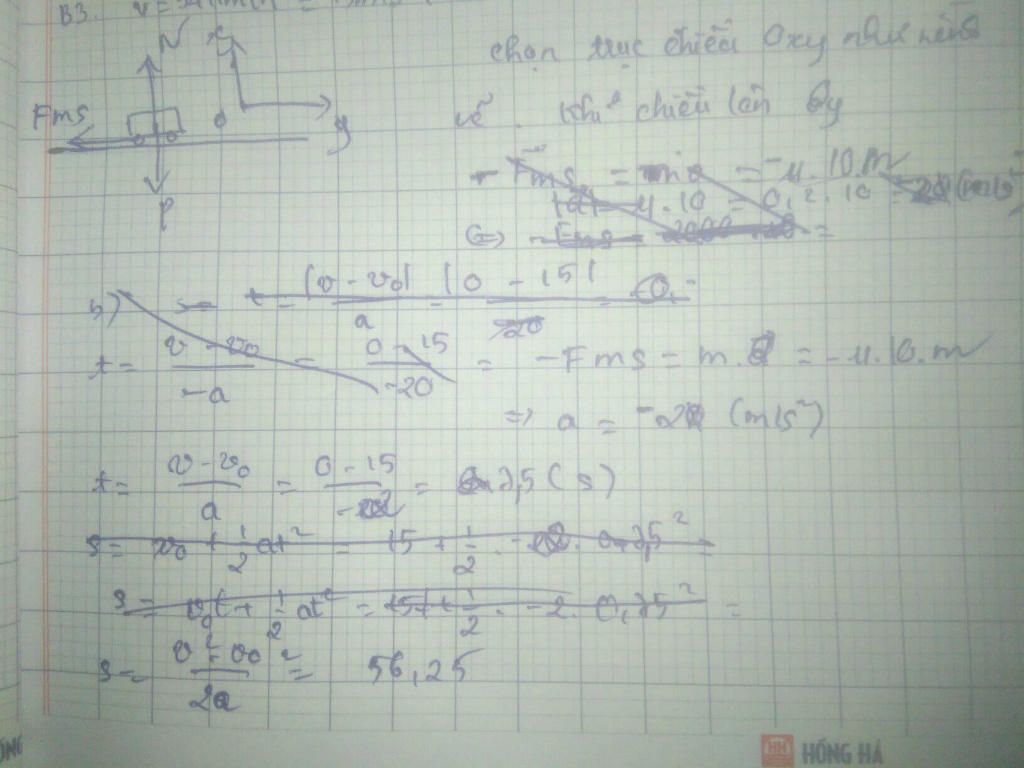 B3. v = 54 km/h = 15 m/s
N
x
Fms
y
P
chọn trục chiếu Oxy như hình
vẽ. Khi chiếu lên Oy
- Fms = m.a = -μ.10.m
|a| = μ.10 = 0,2.10 = (m/s²)
(=) - Fms =
b) s = t = |v - v₀| / a = |0 - 15| / 20 = 0,
t = v - v₀ / -a = 0 - 15 / -20 = - Fms = m.a = -μ.10.m
=> a = -2 (m/s²)
t = v - v₀ / a = 0 - 15 / -2 = 7,5 (s)
s = v₀ + 1/2 at² = 15 + 1/2 . - . 0,75²
s = v₀t + 1/2 at² = 15t + 1/2 . -2 . 0,75² =
s = v² - v₀² / 2a = 56,25
HH HỒNG HÀ